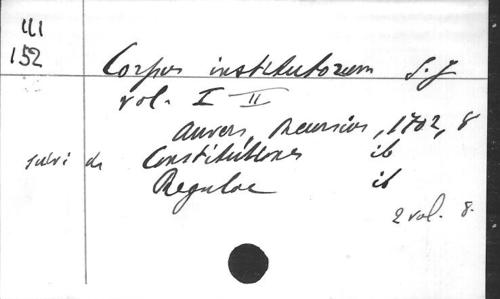 III
152
Corpus institutorum S. J
vol. I II
Anvers, Meursius, 1702, 8
suivi de Constitutiones ib
Regulae ib
2 vol. 8.